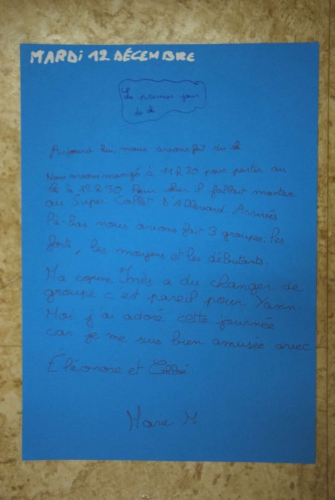 MARDI 12 DÉCEMBRE
Le premier jour
de
Aujourd'hui nous avons fait du
Nous avons mangé à 11h20 pour partir au
à 12h30. Pour cela il fallait monter
au Super Collet D'Allevard. Arrivés
là-bas nous avons fait 3 groupes: les
fort, les moyens et les débutants.
Ma copine Inès a du changer de
groupe c'est pareil pour Yann.
Moi j'ai adoré cette journée
car je me suis bien amusée avec
Éléonore et Chloé.
M